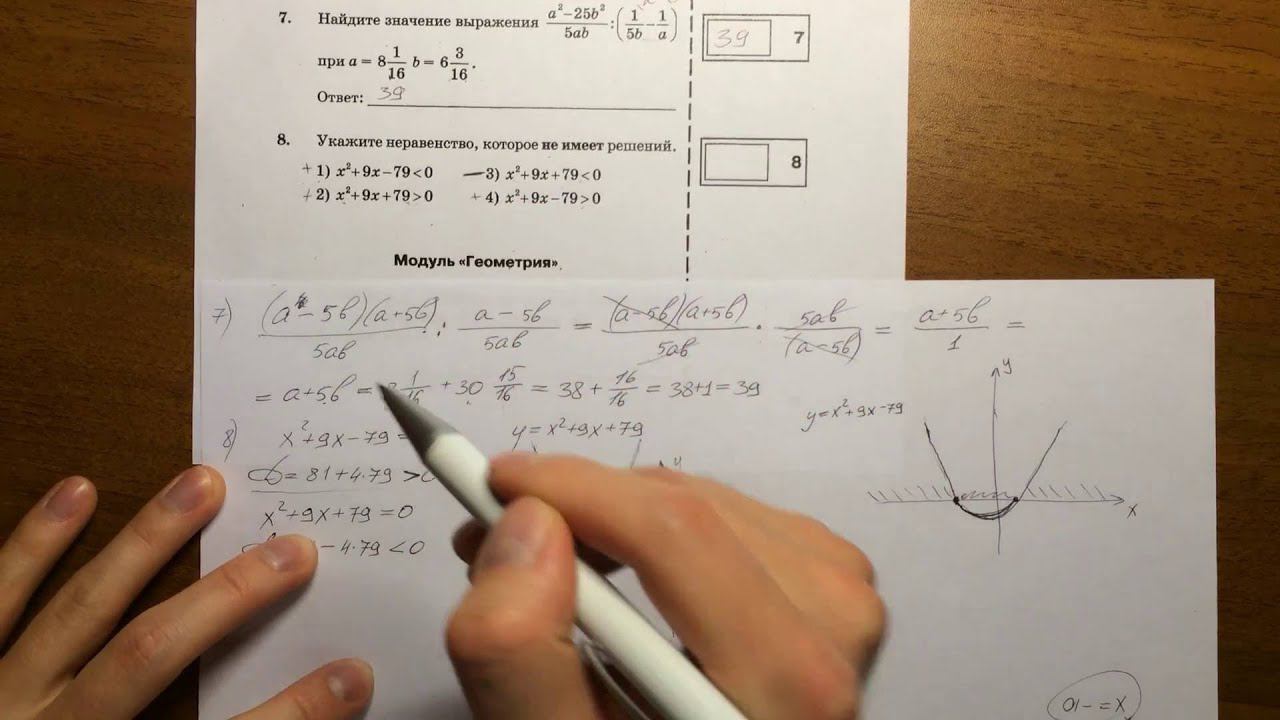 7. Найдите значение выражения (a²−25b²)/(5ab) : (1/(5b) − 1/a)
39 7
при a = 8 1/16 b = 6 3/16.
Ответ: 39
8. Укажите неравенство, которое не имеет решений.
8
+ 1) x²+9x−79<0 — 3) x²+9x+79<0
+ 2) x²+9x+79>0 + 4) x²+9x−79>0
Модуль «Геометрия»
7) (a − 5b)(a+5b)/(5ab) : (a − 5b)/(5ab) = (a−5b)(a+5b)/(5ab) · 5ab/(a−5b) = (a+5b)/1 =
= a+5b = 1/16 + 30 15/16 = 38 + 16/16 = 38+1 = 39
8) x²+9x−79 =
y = x²+9x+79
y = x²+9x−79
y
x
D = 81+4·79 >0
y
x²+9x+79 = 0
− 4·79 <0
x = −10